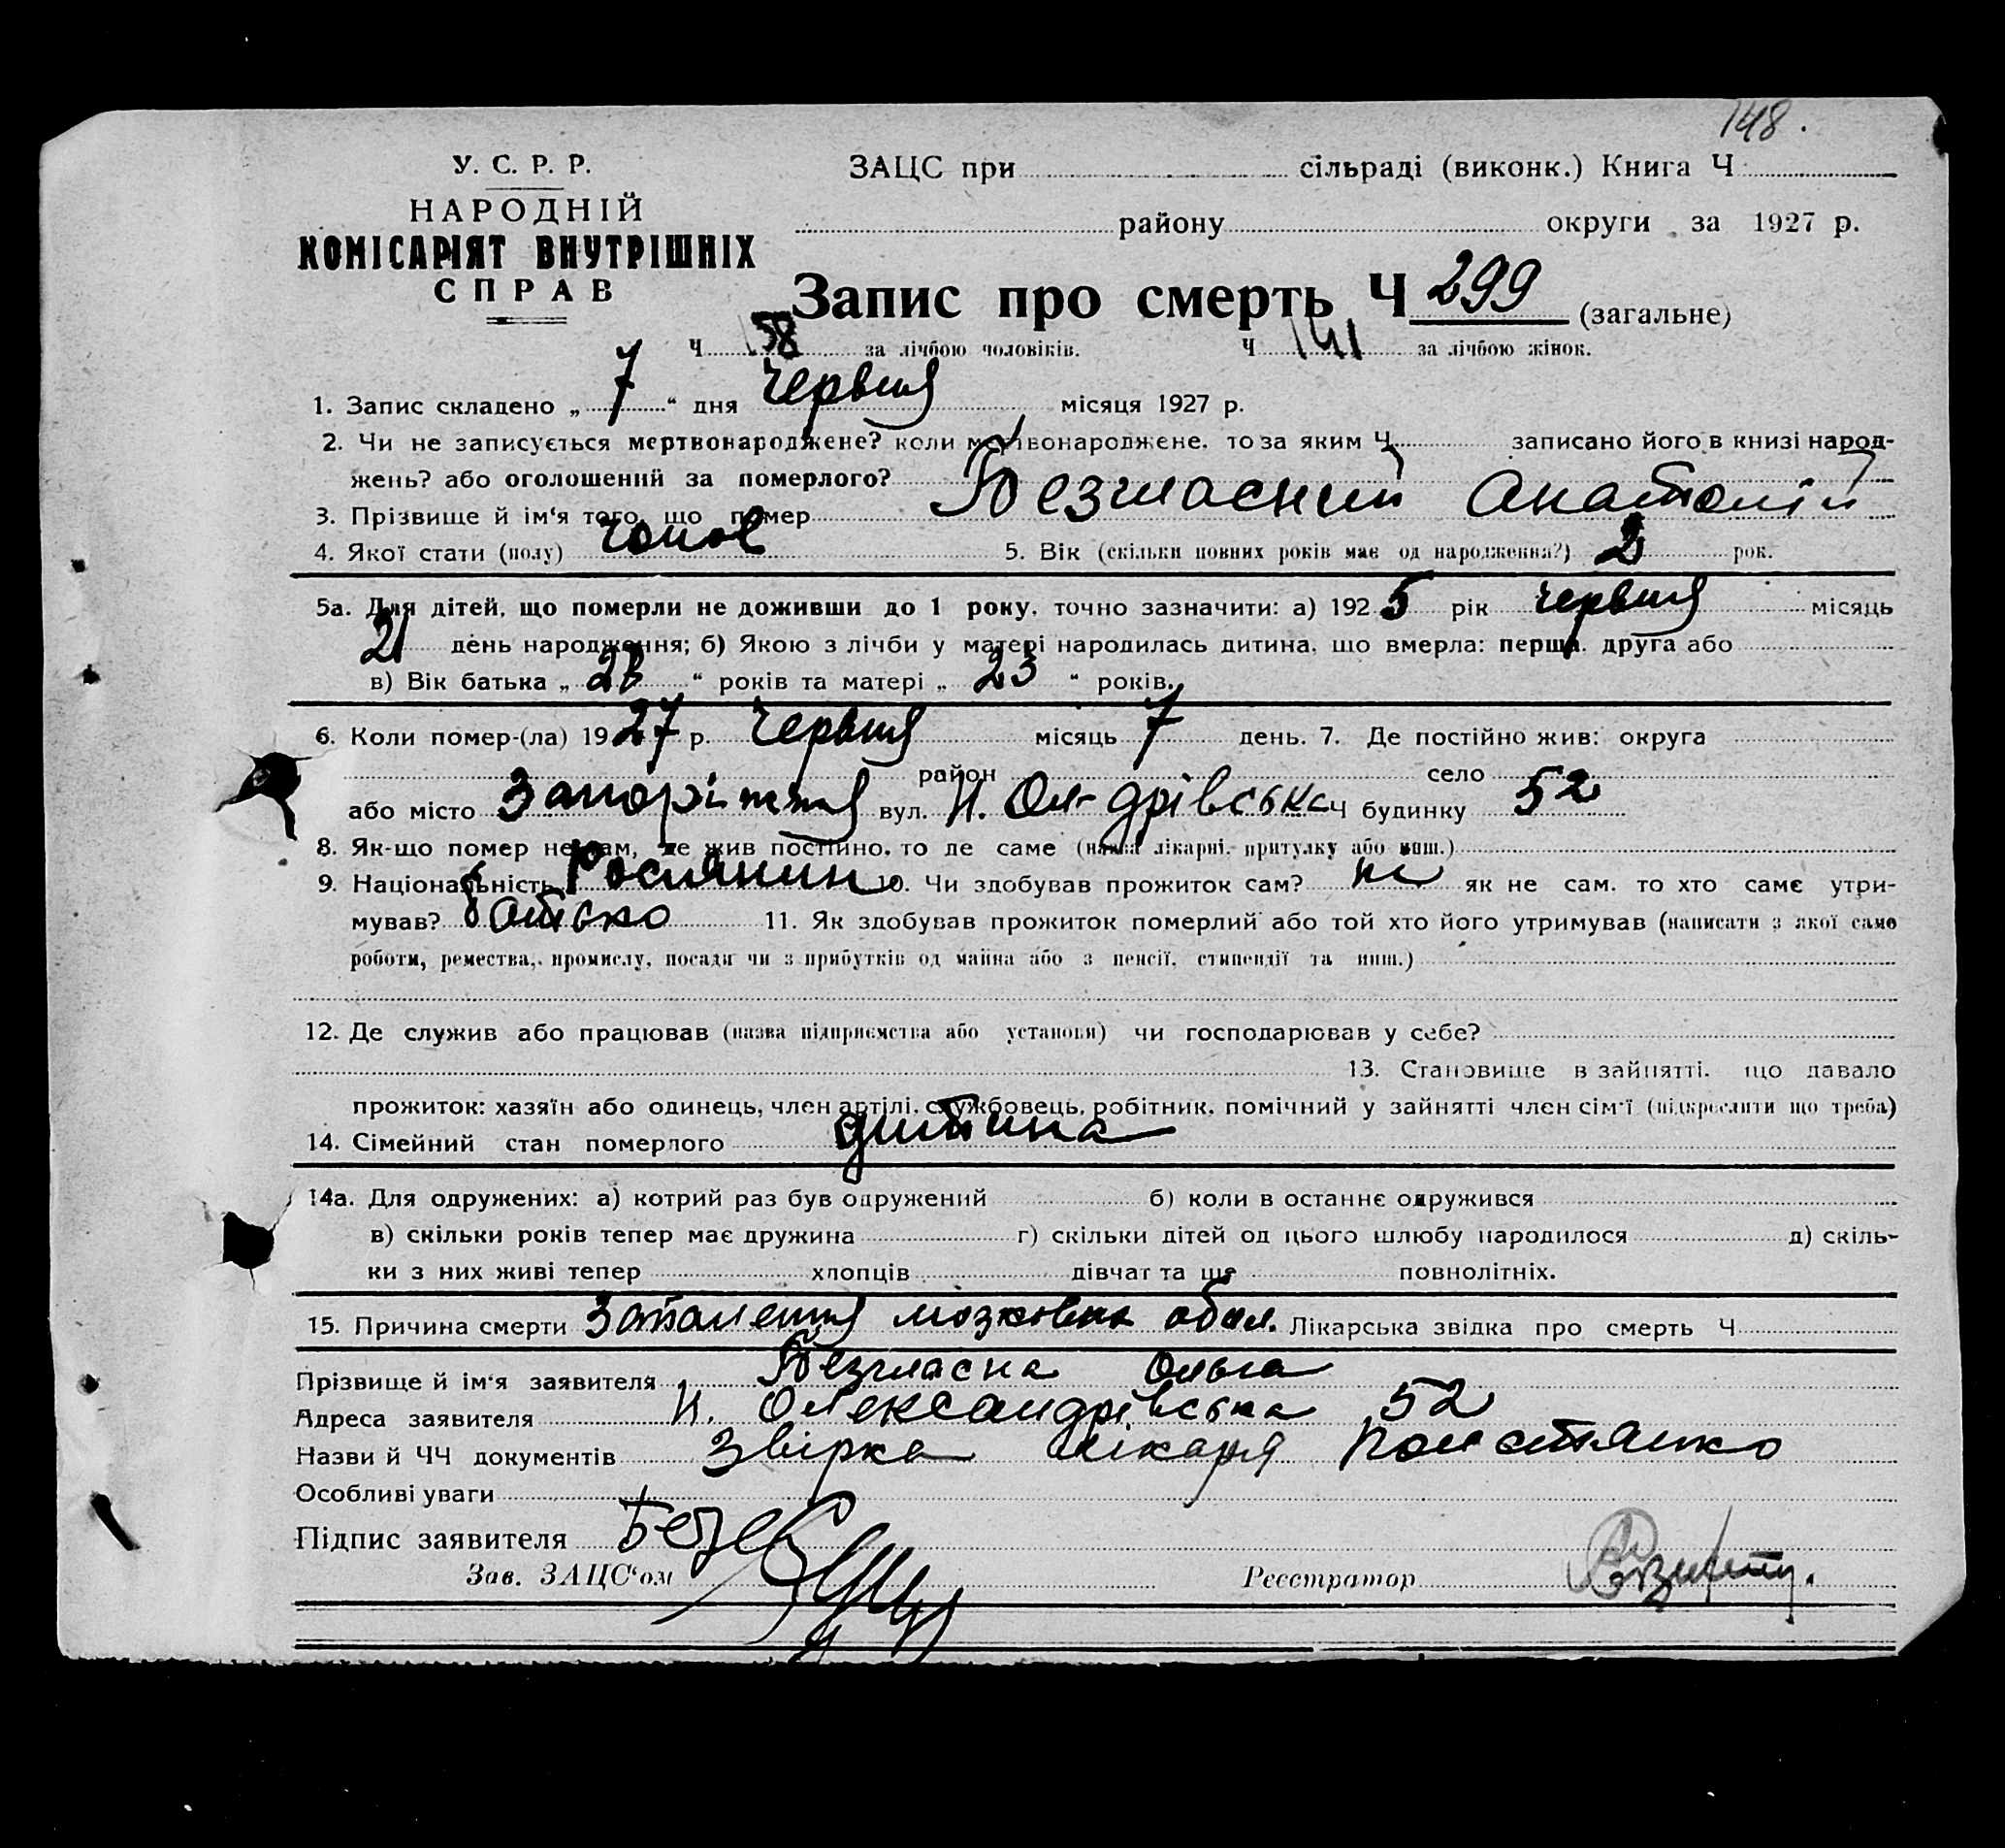 148.
У. С. Р. Р.
НАРОДНІЙ
КОМІСАРІЯТ ВНУТРІШНІХ
СПРАВ
ЗАЦС при сільраді (виконк.) Книга Ч
району округи за 1927 р.
Запис про смерть Ч 299 (загальне)
Ч 158 за лічбою чоловіків. Ч 141 за лічбою жінок.
1. Запис складено „ 7 “ дня червня місяця 1927 р.
2. Чи не записується мертвонароджене? коли мертвонароджене, то за яким Ч записано його в книзі народ-
жень? або оголошений за померлого?
3. Прізвище й ім‘я того, що помер Безгласний Анатолій
4. Якої стати (полу) чолов 5. Вік (скільки повних років має од народження?) 2 рок.
5а. Для дітей, що померли не доживши до 1 року, точно зазначити: а) 1925 рік червня місяць
21 день народження; б) Якою з лічби у матері народилась дитина, що вмерла: перша, друга або
в) Вік батька „ 28 “ років та матері „ 23 “ років.
6. Коли помер-(ла) 1927 р. червня місяць 7 день. 7. Де постійно жив: округа
район село
або місто Запоріжжя вул. Н. Ол-дрівська Ч будинку 52
8. Як-що помер не там, де жив постійно, то де саме (назва лікарні, притулку або инш.)
9. Національність Росіянин 10. Чи здобував прожиток сам? ні як не сам, то хто самє утри-
мував? батько 11. Як здобував прожиток померлий або той хто його утримував (написати з якої само
роботи, ремества, промислу, посади чи з прибутків од майна або з пенсії, стипендії та инш.)
12. Де служив або працював (назва підприємства або установи) чи господарював у себе?
13. Становище в зайнятті, що давало
прожиток: хазяїн або одинець, член артілі, службовець, робітник, помічний у зайнятті член сім‘ї (підкреслити що треба)
14. Сімейний стан померлого дитина
14а. Для одружених: а) котрий раз був одружений б) коли в останнє одружився
в) скільки років тепер має дружина г) скільки дітей од цього шлюбу народилося д) скіль-
ки з них живі тепер хлопців дівчат та ще повнолітніх.
15. Причина смерти Запалення мозкових обол. Лікарська звідка про смерть Ч
Прізвище й ім‘я заявителя Безгласна Ольга
Адреса заявителя Н. Олександрівська 52
Назви й ЧЧ документів Звірка лікаря
Особливі уваги
Підпис заявителя
Зав. ЗАЦС‘ом Реєстратор